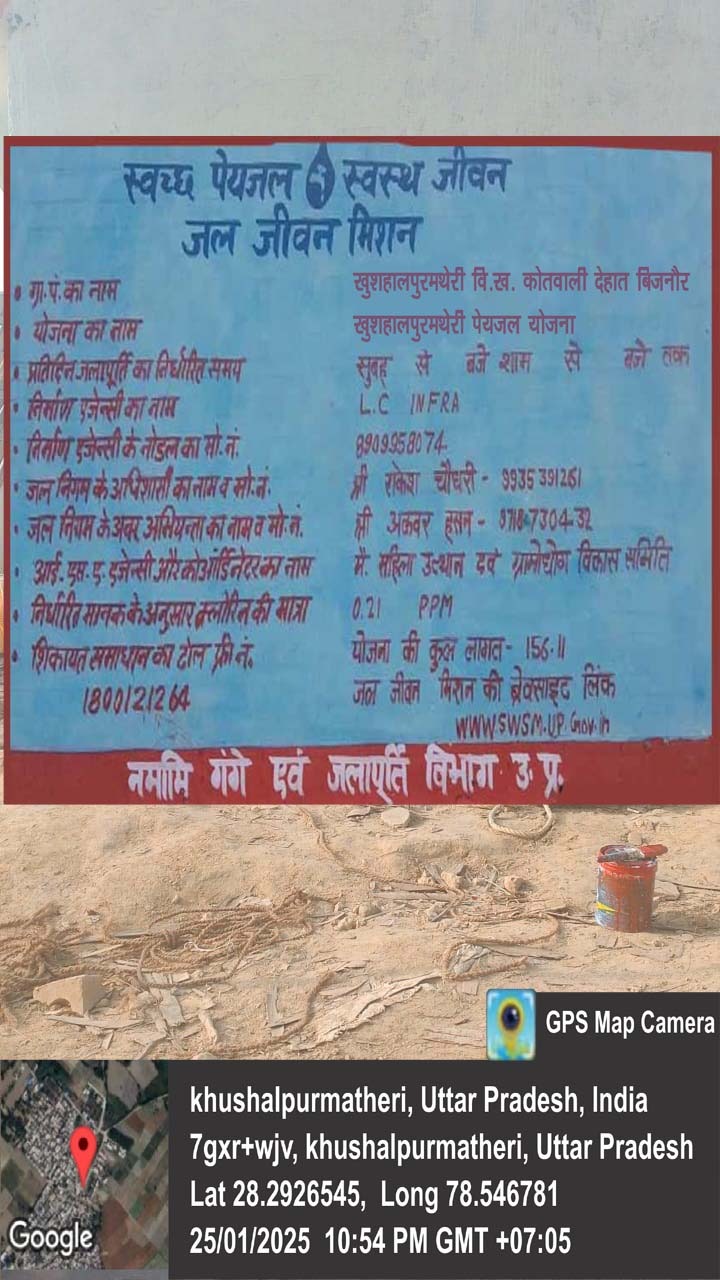 स्वच्छ पेयजल स्वस्थ जीवन
जल जीवन मिशन
• ग्रा.पं.का नाम खुशहालपुरमथेरी वि.ख. कोतवाली देहात बिजनौर
• योजना का नाम खुशहालपुरमथेरी पेयजल योजना
• प्रतिदिन जलापूर्ति का निर्धारित समय सुबह से बजे शाम से बजे तक
• निर्माण एजेन्सी का नाम L.C INFRA
• निर्माण एजेन्सी के नोडल का मो.नं. 8909958074
• जल निगम के अधिशासी का नाम व मो.नं. श्री राकेश चौधरी - 9935391261
• जल निगम के अवर अभियन्ता का नाम व मो.नं. श्री अकबर हसन - 0718-7304-32
• आई.एस.ए. एजेन्सी और कोऑर्डिनेटर का नाम मै. महिला उत्थान एवं ग्रामोद्योग विकास समिति
• निर्धारित मानक के अनुसार क्लोरिन की मात्रा 0.21 PPM
• शिकायत समाधान का टोल फ्री नं. योजना की कुल लागत - 156.11
18001 21264 जल जीवन मिशन की बेक्साइट लिंक
WWW.SWSM.UP.Gov.in
नमामि गंगे एवं जलापूर्ति विभाग उ. प्र.
GPS Map Camera
khushalpurmatheri, Uttar Pradesh, India
7gxr+wjv, khushalpurmatheri, Uttar Pradesh
Lat 28.2926545, Long 78.546781
25/01/2025 10:54 PM GMT +07:05
Google